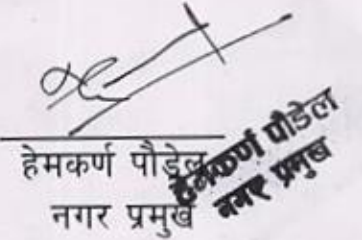 हेमकर्ण पौडेल
नगर प्रमुख
हेमकर्ण पौडेल
नगर प्रमुख